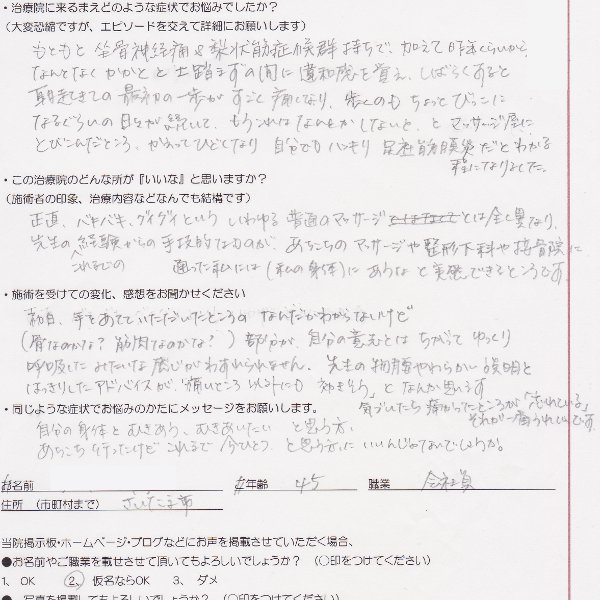 ・治療院に来るまえどのような症状でお悩みでしたか?
(大変恐縮ですが、エピソードを交えて詳細にお願いします)
もともと坐骨神経痛&梨状筋症候群持ちで、加えて昨年くらいから
なんとなくかかとと土踏まずの間に違和感を覚え、しばらくすると
朝起きての最初の一歩がすごく痛くなり、歩くのもちょっとびっこに
なるぐらいの日々が続いて、もうこれはなんとかしないと、とマッサージ屋に
とびこんだところ、かえってひどくなり自分でもハッキリ足底筋膜炎だとわかる
程になりました。
・この治療院のどんな所が『いいな』と思いますか?
(施術者の印象、治療内容などなんでも結構です)
正直、バキバキ、グイグイという いわゆる普通のマッサージとは全く異なり、
先生の経験からの手技的なものが、あちこちのマッサージや整形外科や接骨院に
これまでの 通った私には(私の身体)に あうなと実感できるところです。
・施術を受けての変化、感想をお聞かせください
初日、手をあてていただいたところの なんだかわからないけど
(骨なのかな? 筋肉なのかな? )部分が、自分の意志とはちがって ゆっくり
呼吸したみたいな感じがわすれられません。先生の物腰やわらかい説明と
はっきりしたアドバイスが、「痛いところ以外にも 効きそう」となんか思います
気づいたら痛かったところが「忘れている」
それが一番うれしいです。
・同じような症状でお悩みのかたにメッセージをお願いします。
自分の身体とむきあう、むきあいたい と思う方、
あちこち行ったけど これまで今ひとつ と思う方、にいいんじゃないでしょうか。
お名前 年齢 45 職業 会社員
住所 (市町村まで) さいたま市
当院掲示板・ホームページ・ブログなどにお声を掲載させていただく場合、
●お名前やご職業を載せさせて頂いてもよろしいでしょうか? (○印をつけてください)
1、OK 2、仮名ならOK 3、ダメ
●写真を掲載してもよろしいでしょうか? (○印をつけてください)